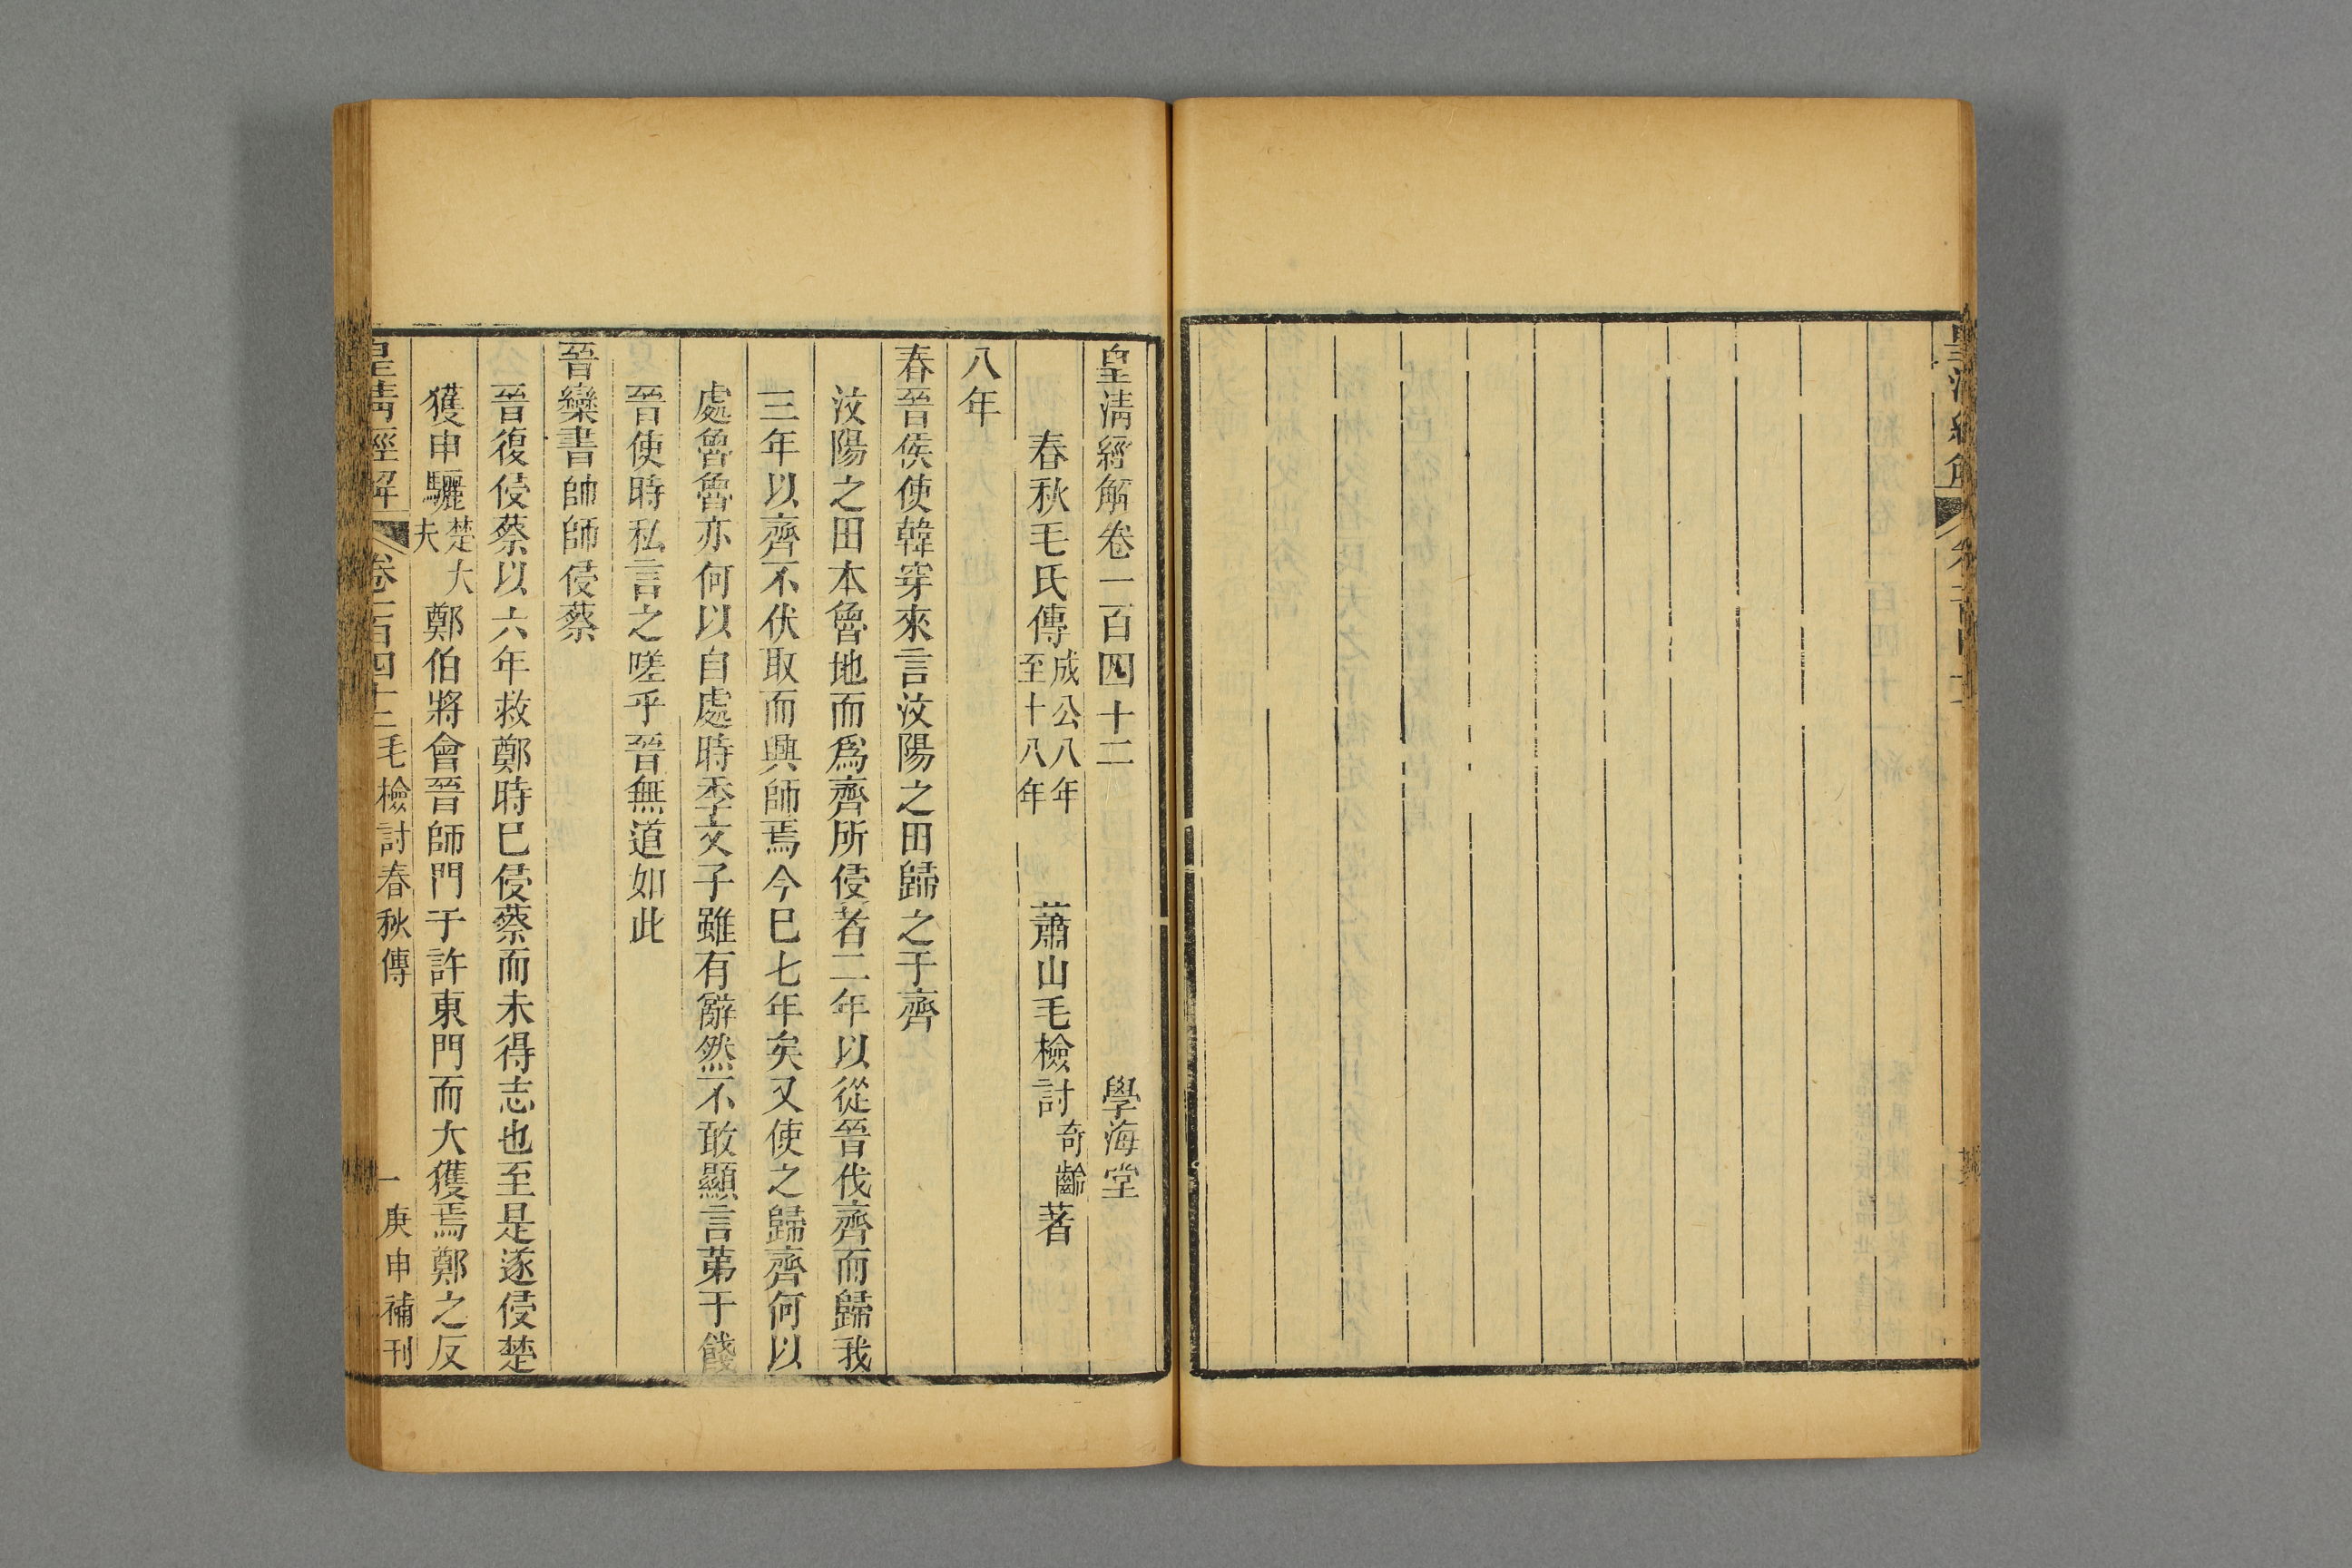 皇清經解卷一百四十二　學海堂
春秋毛氏傳成公八年至十八年　蕭山毛檢討奇齡著
八年
春晉侯使韓穿來言汶陽之田歸之于齊
汶陽之田本魯地而爲齊所侵者二年以從晉伐齊而歸我
三年以齊不伏取而興師焉今巳七年矣又使之歸齊何以
處魯魯亦何以自處時季文子雖有辭然不敢顯言苐于餞
晉使時私言之嗟乎晉無道如此
晉欒書帥師侵蔡
晉復侵蔡以六年救鄭時巳侵蔡而未得志也至是遂侵楚
獲申驪楚大夫鄭伯將會晉師門于許東門而大獲焉鄭之反
皇清經解　卷一百四十二　毛檢討春秋傳　一　庚申補刊